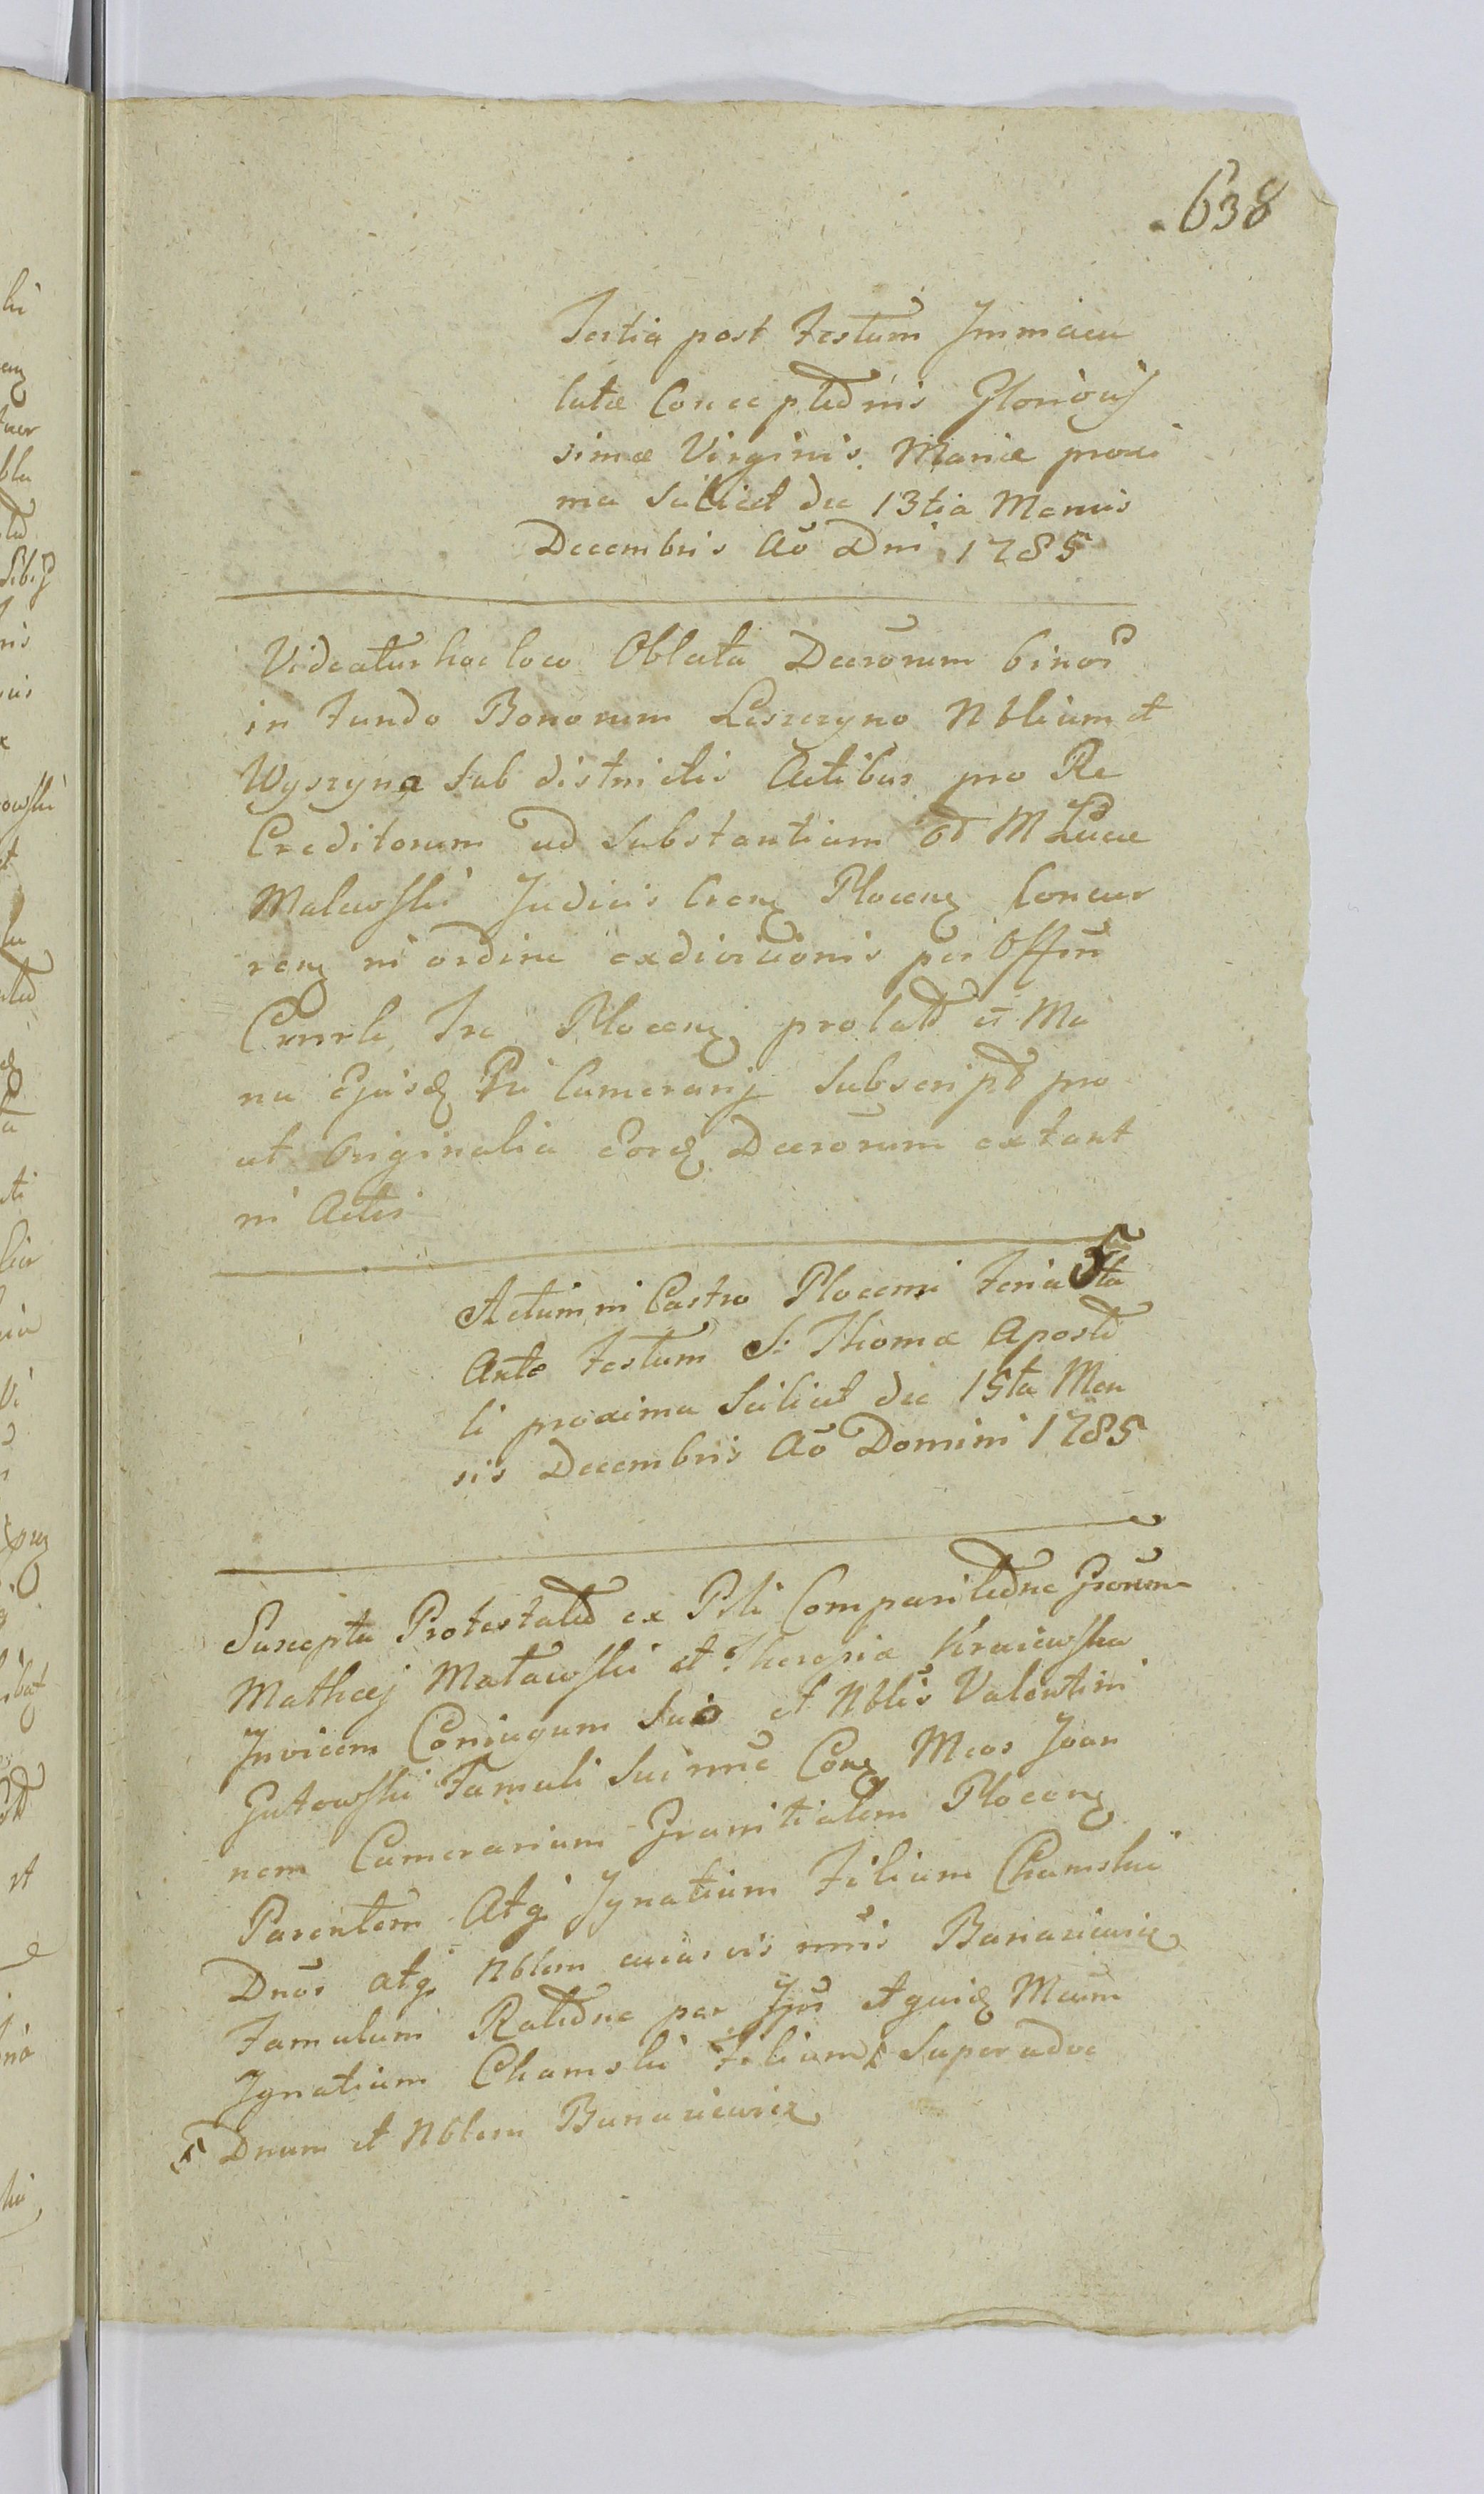 638
Tertia post Festum Immacu
latæ Conceptionis Glorious
simæ Virginis Mariæ proxi
ma Scilicet die 13tia Mensis
Decembris Aō Dni 1785
Videatur hoc loco Oblata Decrorum binor
in Fundo Bonorum Leszczyno Nblium et
Wyszyna sub districtis Actibus pro Re
Creditorum ad Substantiam od M Lucæ
Malewski Judicis Crens Plocens Concur
rens in ordine exdivicionis per Offm
Cmrle Tre Plocens prolatd et Ma
nu Ejusd Pri Camerarij Subscriptd pro
ut Originalia Eord Decrorum extant
in Actis
Actum in Castro Plocensi Feria 5ta
Ante Festum S: Thomæ Aposto
li proxima Scilicet die 15ta Men
sis Decembris Aō Domini 1785
Suscepta Protestatd ex Psli Comparitione Grorum
Mathæj Małowski et Theresiæ Kraiewska
Invicem Coniugum suo et Nblis Valentini
Gutowski Famuli sui nne Cons Mcos Joan
nem Camerarium Granitialem Plocens
Parentem Atq Ignatium Filium Chamskie
Dnos atq Nblem cuiusvis nnis Banasiewicz
Famulum Ratione per Ipm Mcum
Ignatium Chamski Filium Superadve
Dnum et Nblem Banasiewicz